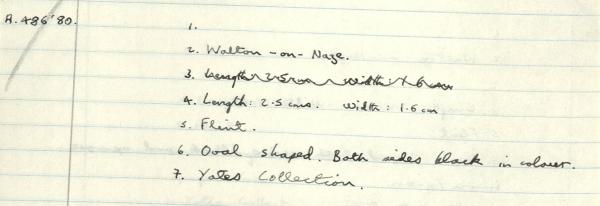 A.486'80.
1.
2. Walton-on-Naze.
3. Length 2.5 cm width: 1.6 cm
4. Length: 2.5 cms. Width: 1.6 cm
5. Flint.
6. Oval shaped. Both sides black in colour.
7. Yates Collection.